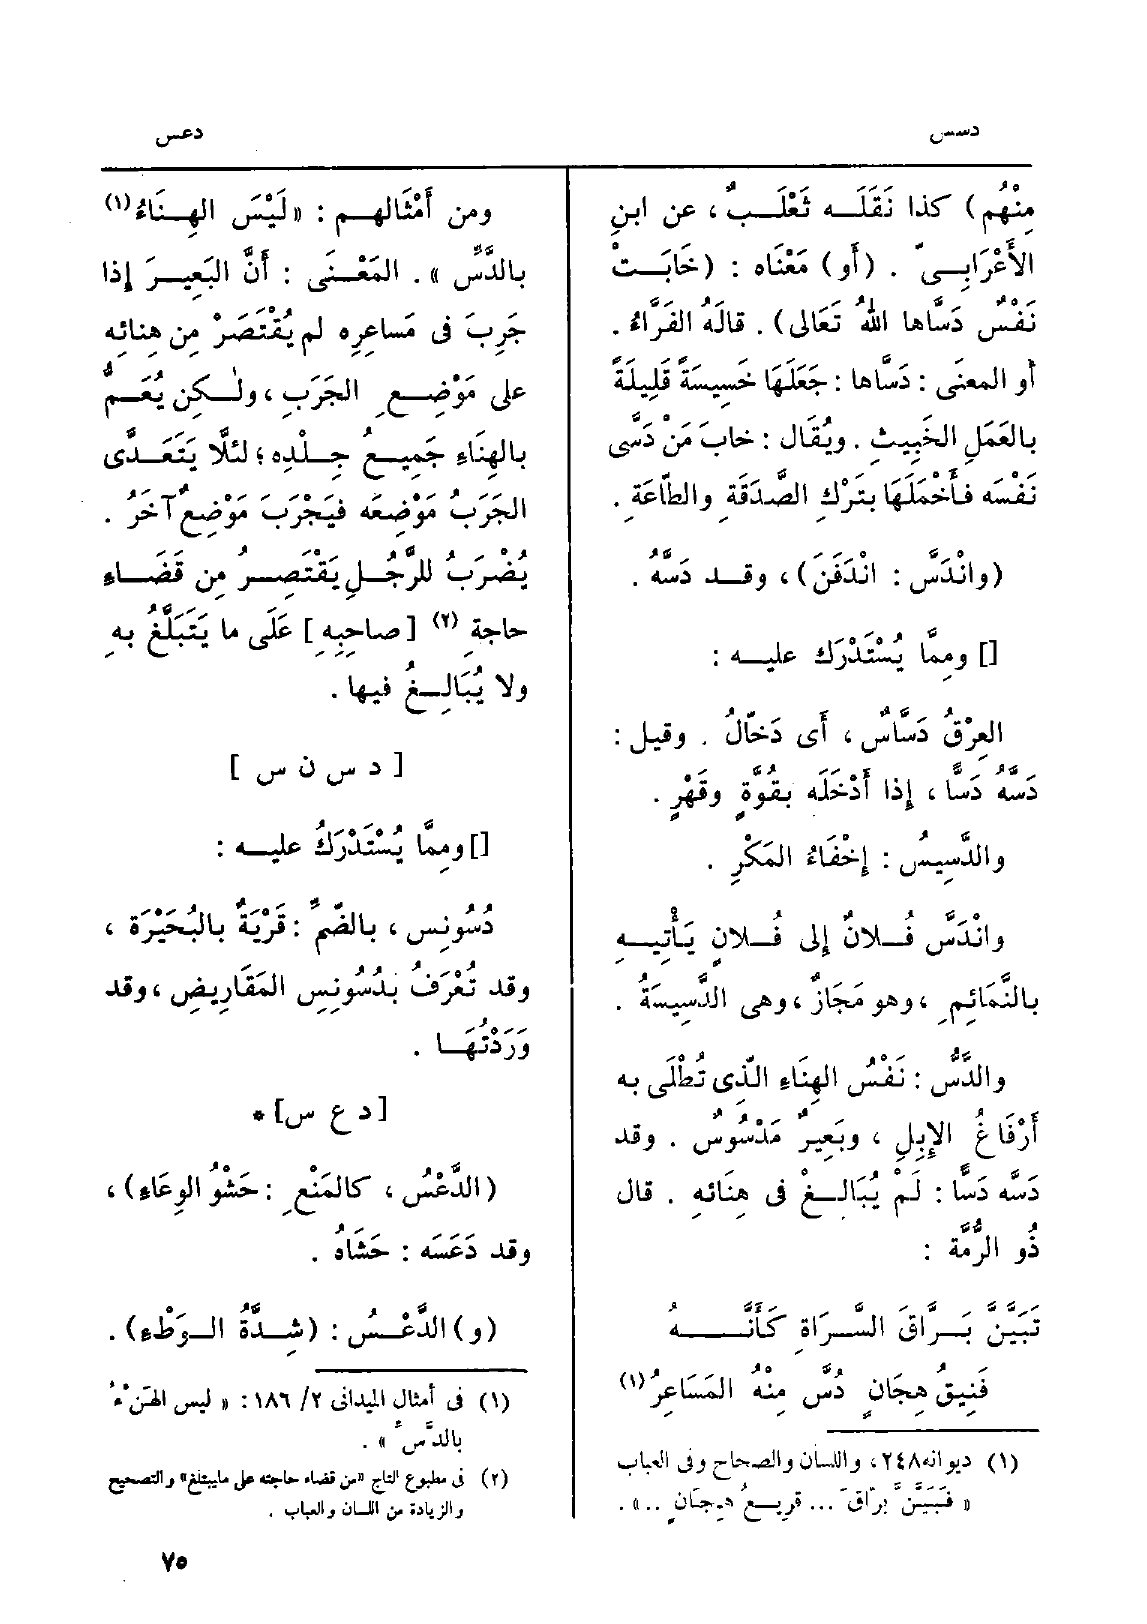 دسس
دعس
مِنْهُم) كذا نَقَلَه ثَعْلَبٌ، عن ابنِ
الأَعْرَابِىّ . (أَو) مَعْنَاه : (خَابَتْ
نَفْسٌ دَسَّاها اللهُ تَعَالى) . قالَهُ الفَرَّاءُ .
أَو المعنَى : دَسَّاها : جَعَلَهَا خَسِيسَةً قَلِيلَةً
بالعَمَلِ الخَبِيثِ . ويُقَال : خابَ مَنْ دَسَّى
نَفْسَه فأَخْمَلَهَا بتَرْكِ الصَّدَقَةِ والطَّاعَةِ .
(وانْدَسَّ : انْدَفَنَ) ، وقد دَسَّهُ .
[] ومِمَّا يُسْتَدْرَك عليه :
العِرْقُ دَسَّاسٌ ، أَى دَخّالٌ . وقيل :
دَسَّهُ دَسًّا ، إِذا أَدْخَلَه بقُوَّةٍ وقَهْرٍ .
والدَّسِيسُ : إِخْفَاءُ المَكْرِ .
وانْدَسَّ فُلانٌ إِلى فُلانٍ يَأْتِيهِ
بالنَّمَائِمِ ، وهو مَجَازٌ ، وهى الدَّسِيسَةُ .
والدَّسُّ : نَفْسُ الهِنَاءِ الَّذِى تُطْلَى به
أَرْفَاغُ الإِبِلِ ، وبَعِيرٌ مَدْسُوسٌ . وقد
دَسَّه دَسًّا : لَمْ يُبَالِغْ فى هِنَائِهِ . قال
ذُو الرُّمَّةِ :
تَبَيَّنَّ بَرَّاقَ السَّرَاةِ كَأَنَّهُ
فَنِيقُ هِجَانٍ دُسَّ مِنْهُ المَسَاعِرُ (١)
(١) ديوانه ٢٤٨ ، واللسان والصحاح وفى العباب
« فَبَيَّنَّ برّاقَ ... قريعُ هِجَانٍ .. » .
ومن أَمْثَالهم : « لَيْسَ الهِنَاءُ (١)
بالدَّسِّ » . المَعْنَى : أَنَّ البَعِيرَ إِذا
جَرِبَ فى مَساعِرِه لم يُقْتَصَرْ مِن هِنائه
على مَوْضِعِ الجَرَبِ ، ولٰكِن يُعَمُّ
بالهِنَاءِ جَمِيعُ جِلْدِه ؛ لئلّا يَتَعَدَّى
الجَرَبُ مَوْضِعَه فيَجْرَبَ مَوْضِعٌ آخَرُ .
يُضْرَبُ للرَّجُلِ يَقْتَصِرُ مِن قَضَاءِ
حاجةِ (٢) [صاحِبِهِ] عَلَى ما يَتَبَلَّغُ بِهِ
ولا يُبَالِغُ فيها .
[ د س ن س ]
[] ومِمَّا يُسْتَدْرَكُ عليه :
دُسُونِس ، بالضَّمِّ : قَرْيَةٌ بالبُحَيْرَة ،
وقد تُعْرَفُ بدُسُونِسِ المَقَارِيضِ ، وقد
وَرَدْتُهَا .
[ د ع س ] *
(الدَّعْسُ ، كالمَنْعِ : حَشْوُ الوِعَاءِ) ،
وقد دَعَسَه : حَشَاهُ .
(و) الدَّعْسُ : (شِدَّةُ الوَطْءِ) .
(١) فى أمثال الميدانى ٢/ ١٨٦ : « ليس الهَنْءُ
بالدَّسِّ » .
(٢) فى مطبوع التاج «من قضاء حاجته على مايبتلغ» والتصحيح
والزيادة من اللسان والعباب .
٧٥